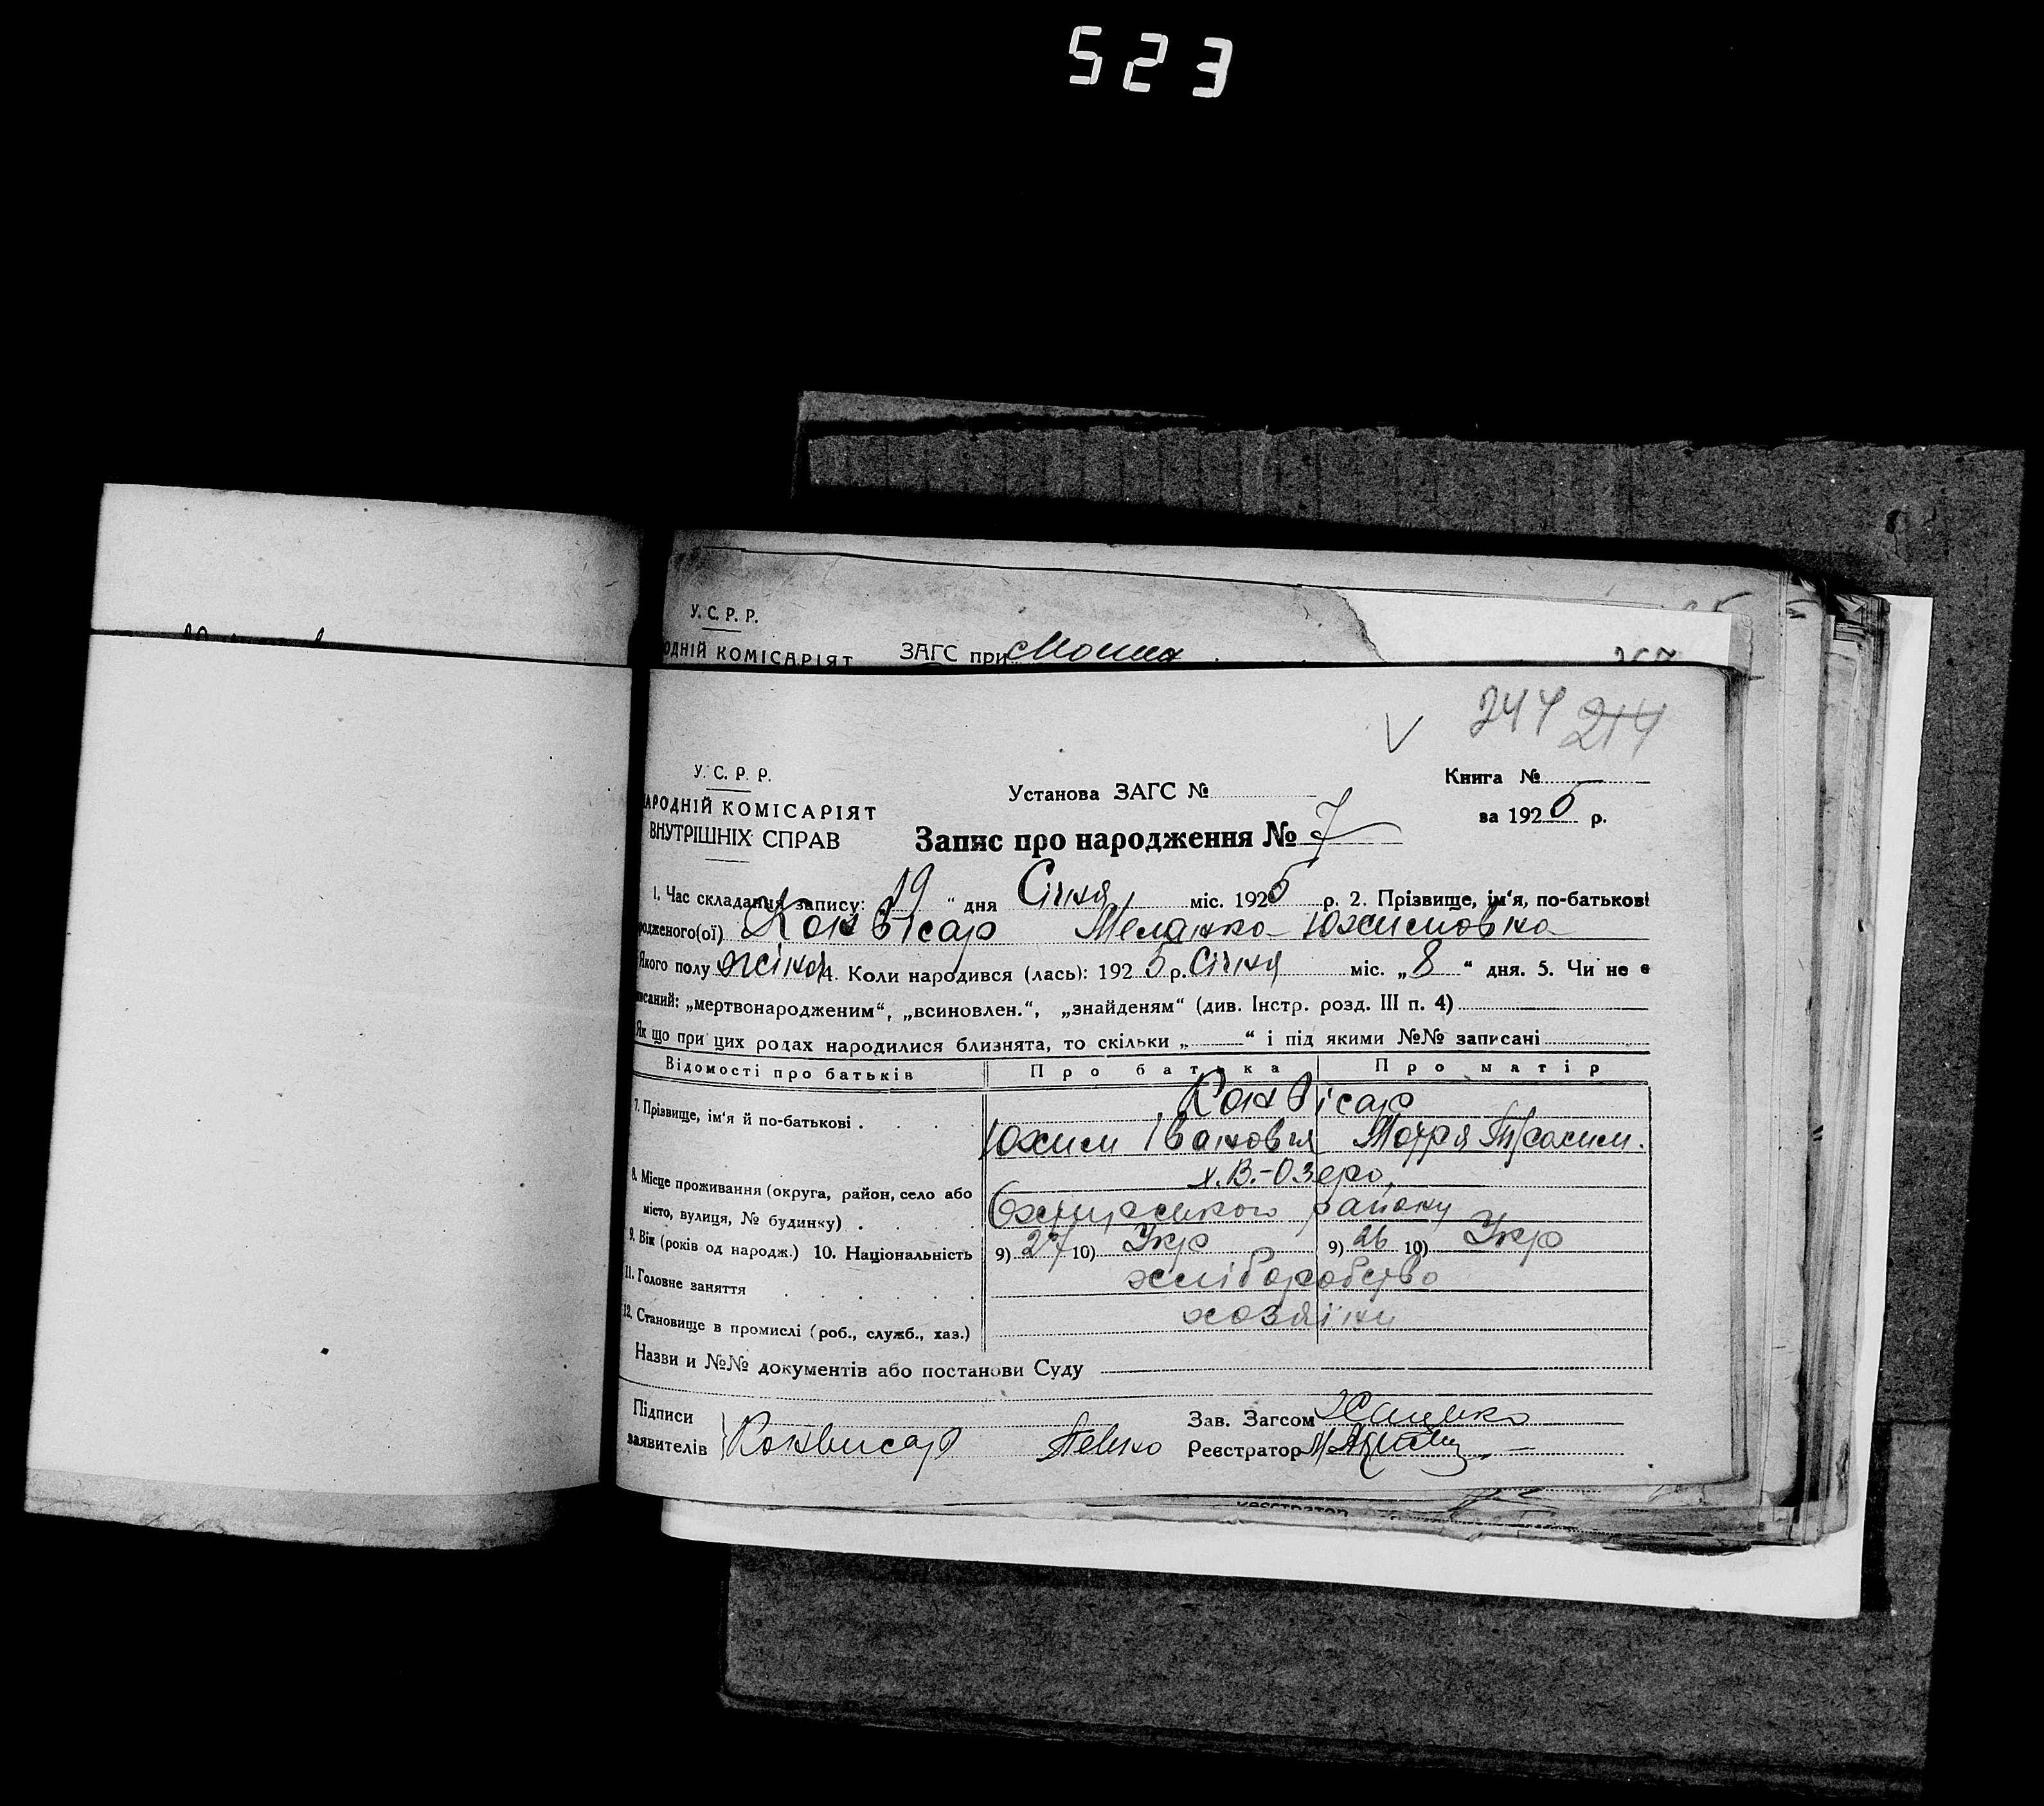 523
У. С. Р. Р.
ОДНІЙ КОМІСАРІЯТ ЗАГС при
244 214
У. С. Р. Р.
АРОДНІЙ КОМІСАРІЯТ
ВНУТРІШНІХ СПРАВ
Установа ЗАГС №
Книга № —
за 1925 р.
Запис про народження № 7
1. Час складання запису: „19“ дня Січня міс. 1925 р. 2. Прізвище, ім‘я, по-батькові
родженого(ої) Конвісар Меланка Юхимовна
Якого полу жіноч 4. Коли народився (лась): 1925 р. Січня міс. „8“ дня. 5. Чи не є
писаний: „мертвонародженим“, „всиновлен.“, „знайденям“ (див. Інстр. розд. III п. 4)
Як що при цих родах народилися близнята, то скільки „ “ і під якими №№ записані
Відомості про батьків Про батька Про матір
7. Прізвище, ім‘я й по-батькові Конвісар
Юхим Іванович Мотря
8. Місце проживання (округа, район, село або х. В.-Озеро,
місто, вулиця, № будинку) району
9. Вік (років од народж.) 10. Національність 9) 27 10) Укр 9) 26 10) Укр
11. Головне заняття хліборобство
12. Становище в промислі (роб., служб., хаз.) хозяїни
Назви и №№ документів або постанови Суду
Підписи
заявителів Конвисар
Зав. Загсом
Реєстратор